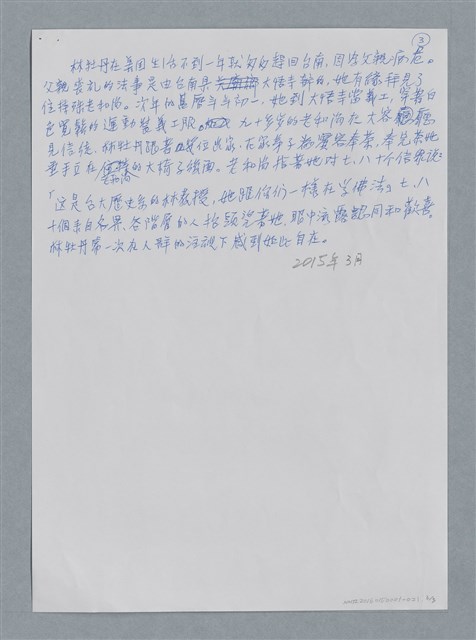 3
林牡丹在美國生活不到一年就匆匆趕回台南，因為父親病危。
父親喪禮的法事是由台南県大悟寺辦的，她有緣拜見了
住持老和尚。次年的農曆年初一，她到大悟寺當義工，穿著白
色寬鬆的運動裝義工服。九十多歲的老和尚在大客廳
見信徒，林牡丹跟著位出家、在家弟子為賓客奉茶，奉完茶她
垂手立在老和尚的大椅子後面。老和尚指著她对七、八十个信眾說：
「这是台大歷史系的林教授，她跟你们一樣在学佛法。」七、八
十個来自各界、各階層的人抬頭望著她，眼中流露認同和歡喜，
林牡丹第一次在人群的注視下感到如此自在。
2015年3月